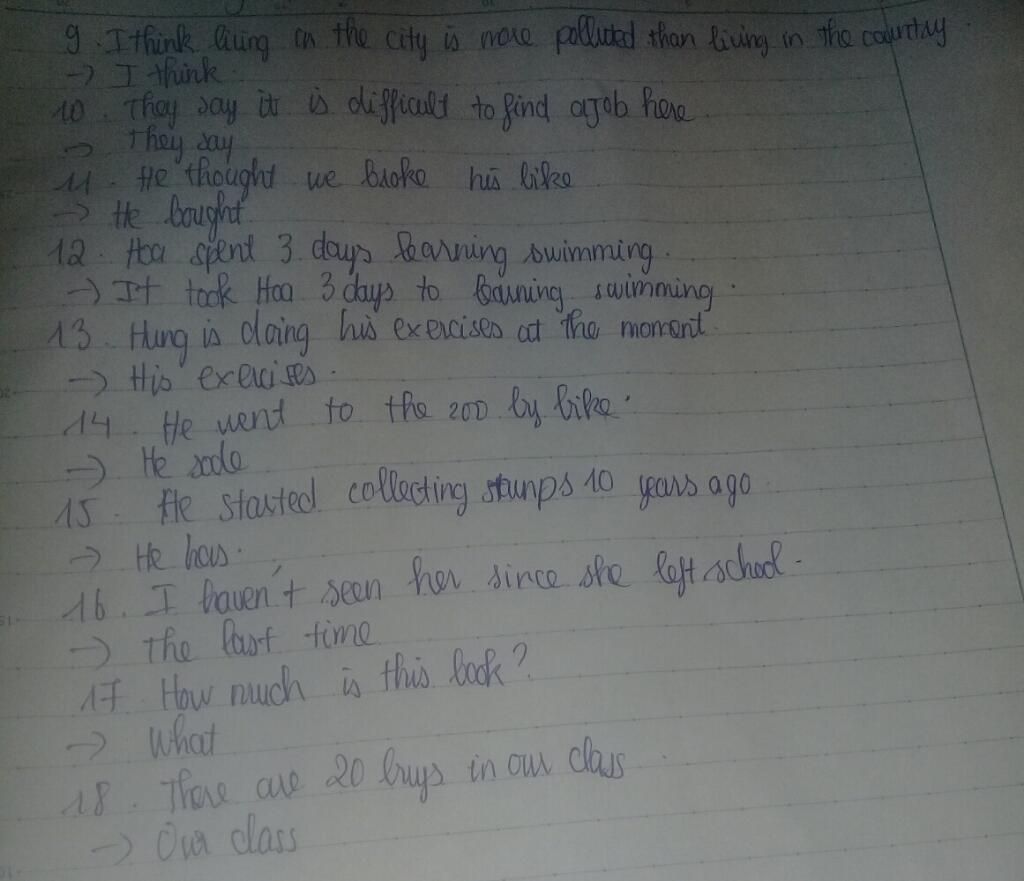 9. I think living in the city is more polluted than living in the country.
-> I think
10. They say it is difficult to find a job here
-> They say
11. He thought we broke his bike
-> He bought
12. Hoa spent 3 days learning swimming.
-> It took Hoa 3 days to learning swimming.
13. Hung is doing his exercises at the moment.
-> His exercises.
14. He went to the zoo by bike.
-> He rode
15. He started collecting stunps 10 years ago
-> He has.
16. I haven't seen her since she left school.
-> The last time
17. How much is this book?
-> What
18. There are 20 buys in our class
-> Our class